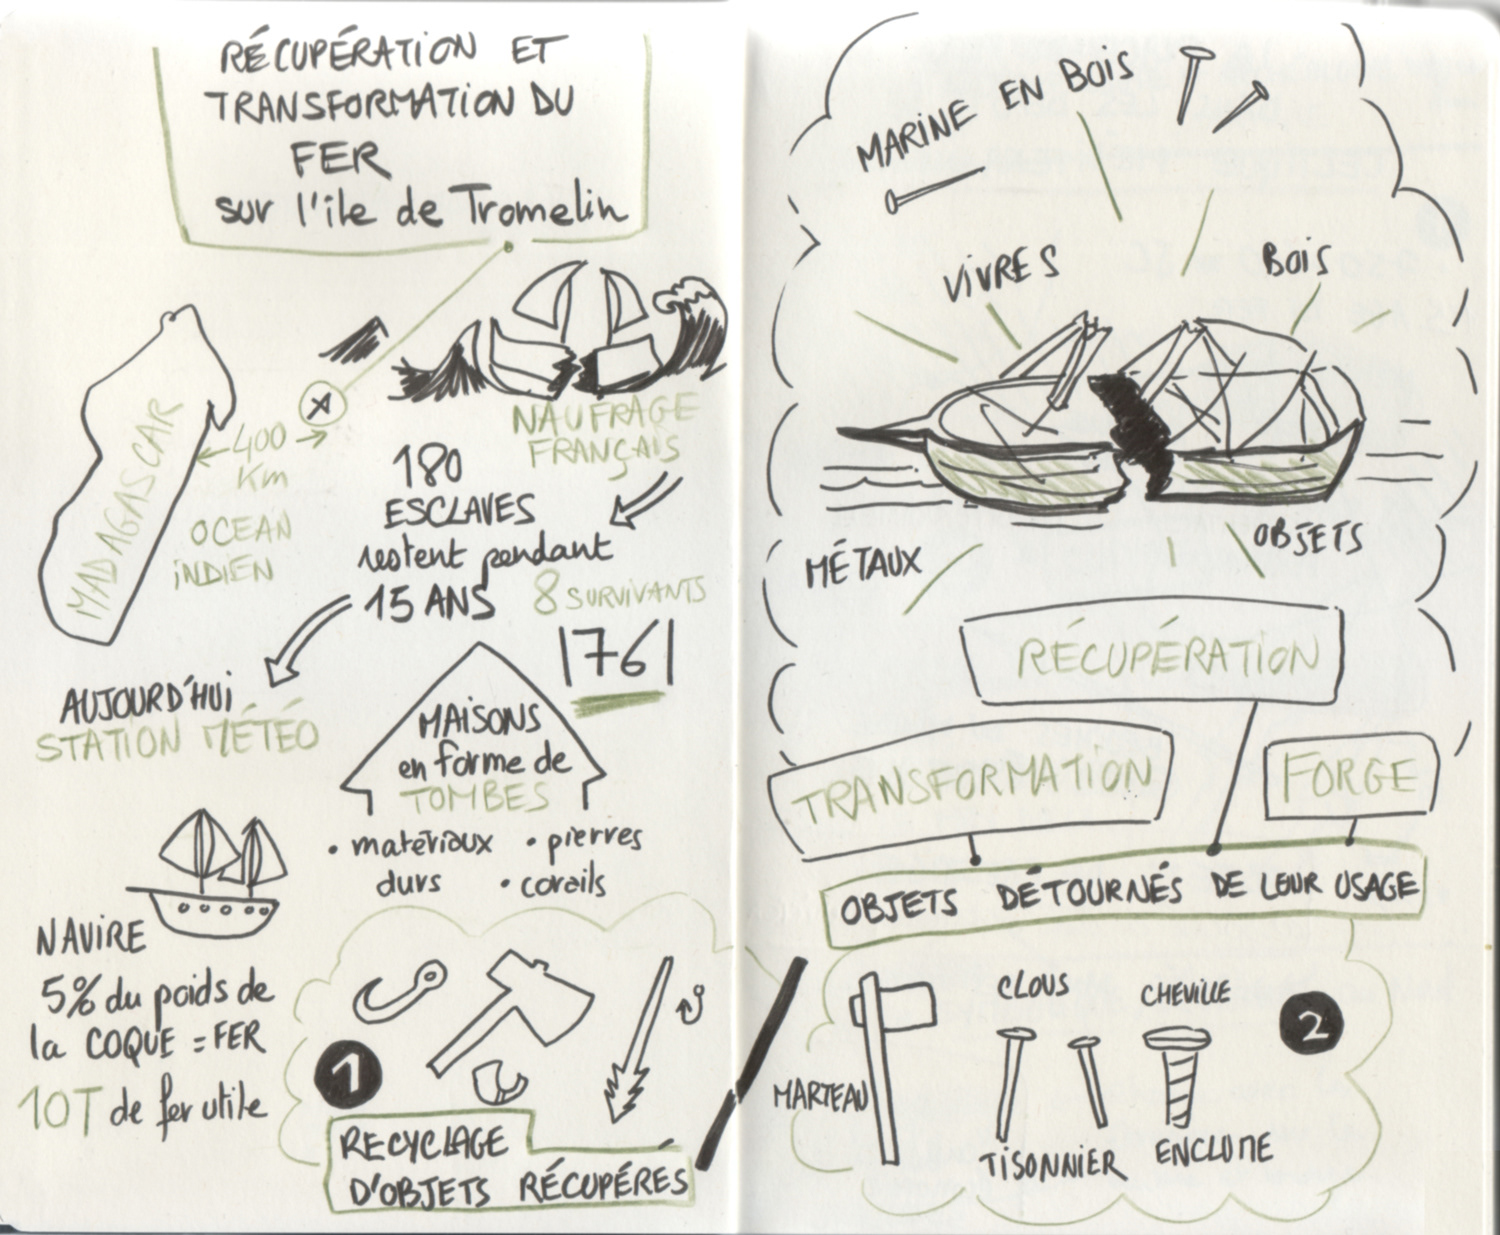 RÉCUPÉRATION ET
TRANSFORMATION DU
FER
sur l'île de Tromelin
NAUFRAGE
FRANÇAIS
MADAGASCAR
400
Km
OCEAN
INDIEN
180
ESCLAVES
restent pendant
15 ANS
8 SURVIVANTS
1761
AUJOURD'HUI
STATION MÉTÉO
MAISONS
en forme de
TOMBES
• matériaux
durs
• pierres
• corails
NAVIRE
5% du poids de
la COQUE = FER
10T de fer utile
1
RECYCLAGE
D'OBJETS RÉCUPÉRÉS
MARINE EN BOIS
VIVRES
BOIS
MÉTAUX
OBJETS
RÉCUPÉRATION
TRANSFORMATION
FORGE
OBJETS DÉTOURNÉS DE LEUR USAGE
MARTEAU
CLOUS
CHEVILLE
2
TISONNIER
ENCLUME